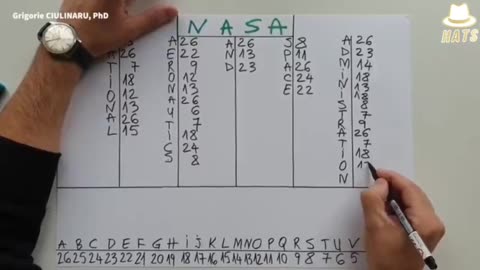 Grigorie CIULINARU, PhD
HATS
N A S A
A 26
T 7
I 18
O 12
N 13
A 26
L 15
A 26
E 22
R 9
O 12
N 13
A 26
U 6
T 7
I 18
C 24
S 8
A 26
N 13
D 23
S 8
P 11
A 26
C 24
E 22
A 26
D 23
M 14
I 18
N 13
I 18
S 8
T 7
R 9
A 26
T 7
I 18
O 1
N
A B C D E F G H I J K L M N O P Q R S T U V
26 25 24 23 22 21 20 19 18 17 16 15 14 13 12 11 10 9 8 7 6 5